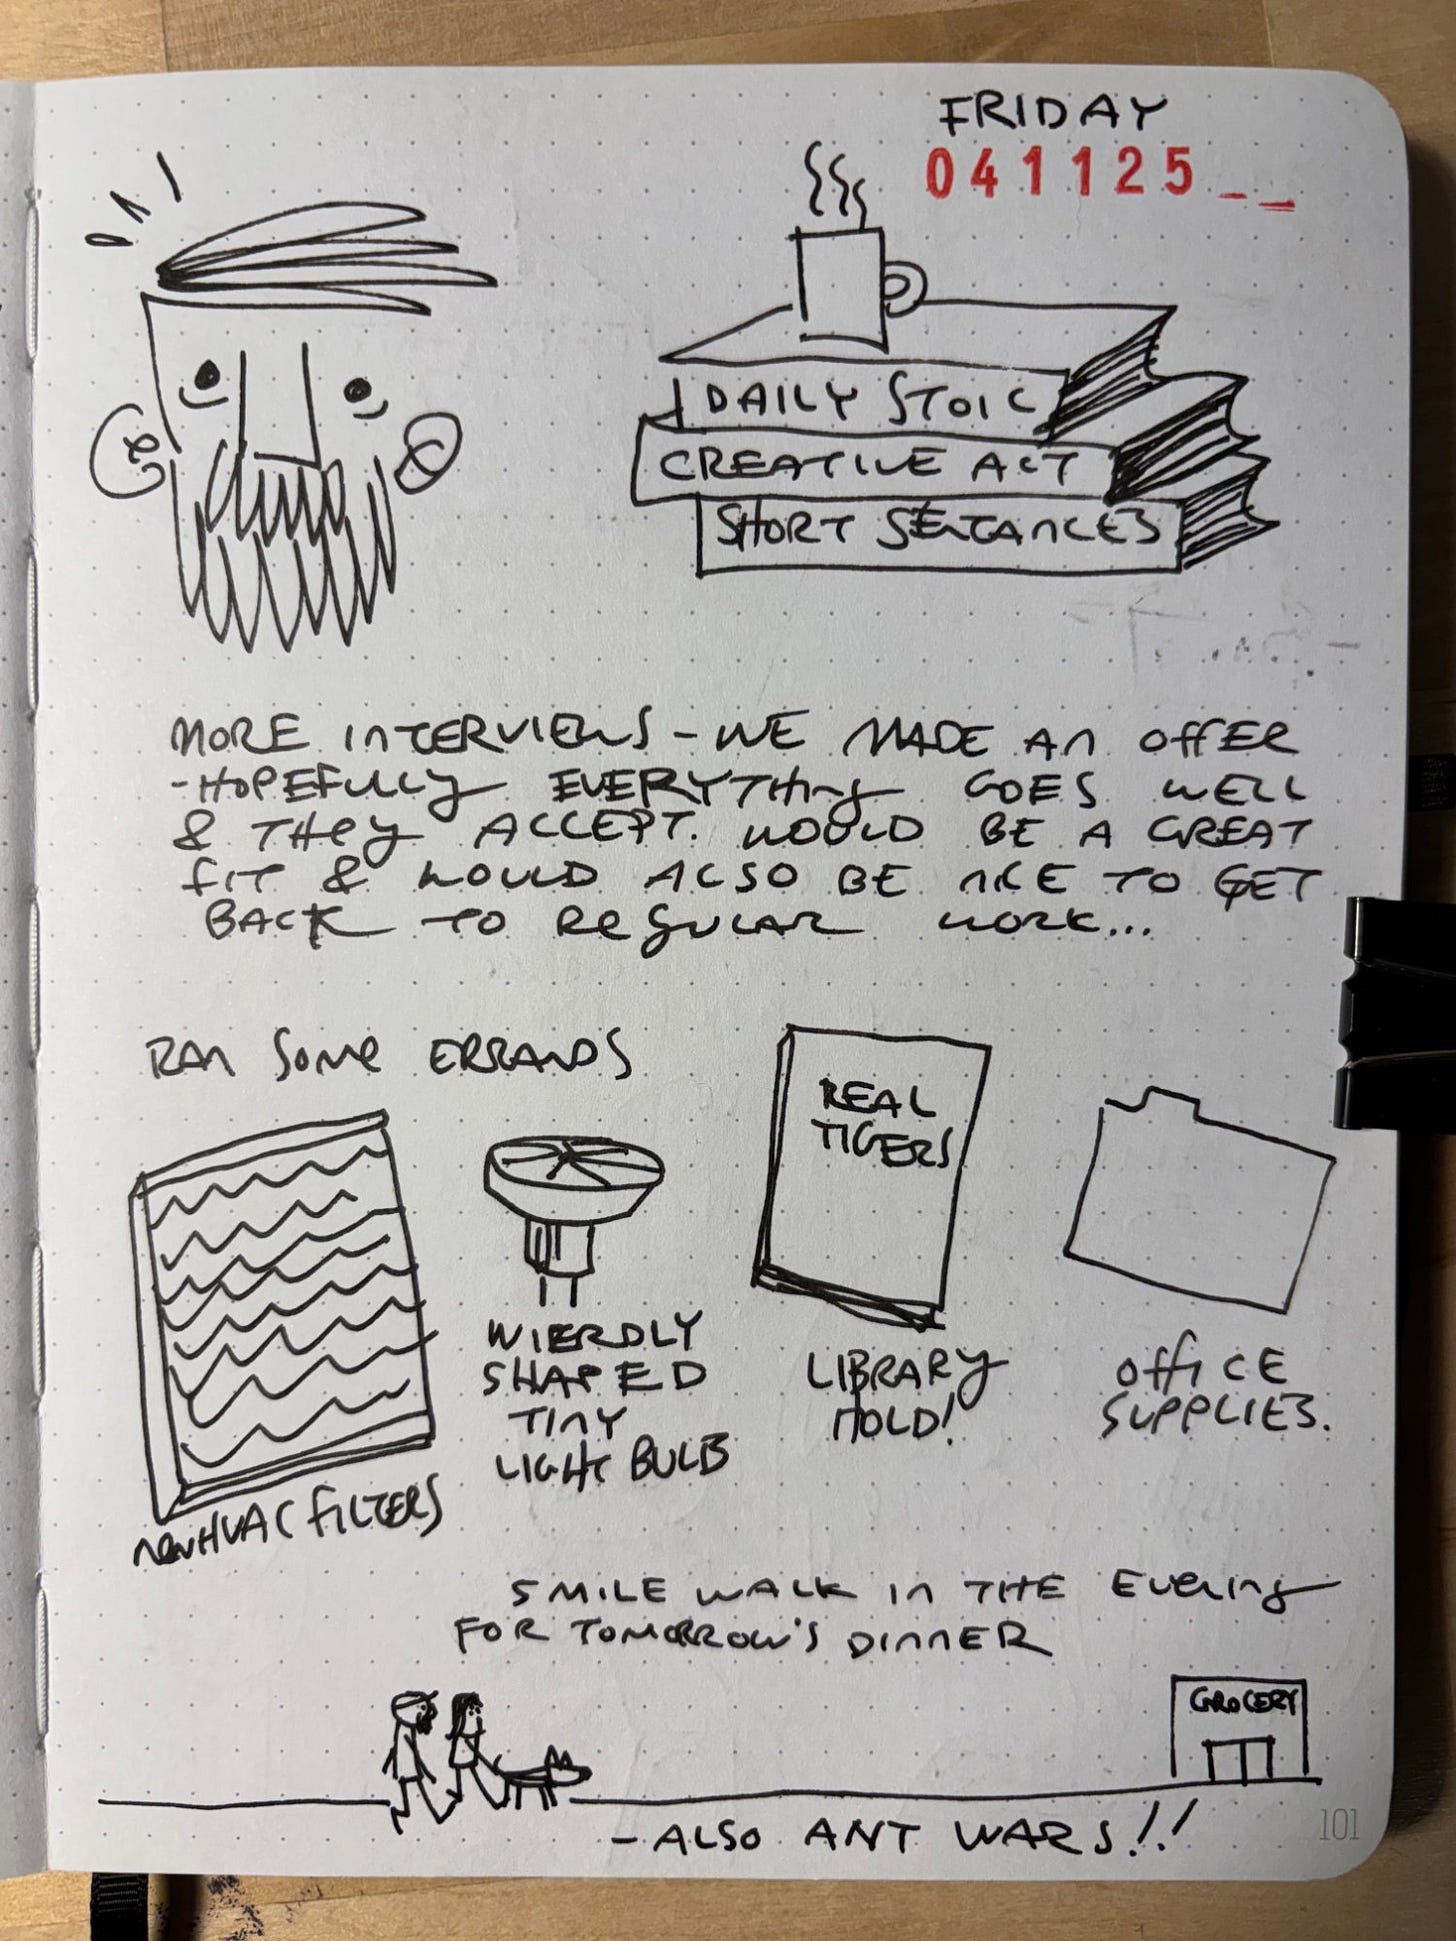 FRIDAY
041125__
DAILY STOIC
CREATIVE ACT
SHORT SENTANCES
MORE INTERVIEWS - WE MADE AN OFFER
- HOPEFULLY EVERYTHING GOES WELL
& THEY ACCEPT. WOULD BE A GREAT
FIT & WOULD ALSO BE NICE TO GET
BACK TO REGULAR WORK...
RAN SOME ERRANDS
REAL
TIGERS
WIERDLY
SHAPED
TINY
LIGHT BULB
LIBRARY
HOLD!
OFFICE
SUPPLIES.
NEW HVAC FILTERS
5 MILE WALK IN THE EVENING
FOR TOMORROW'S DINNER
GROCERY
- ALSO ANT WARS!!
101